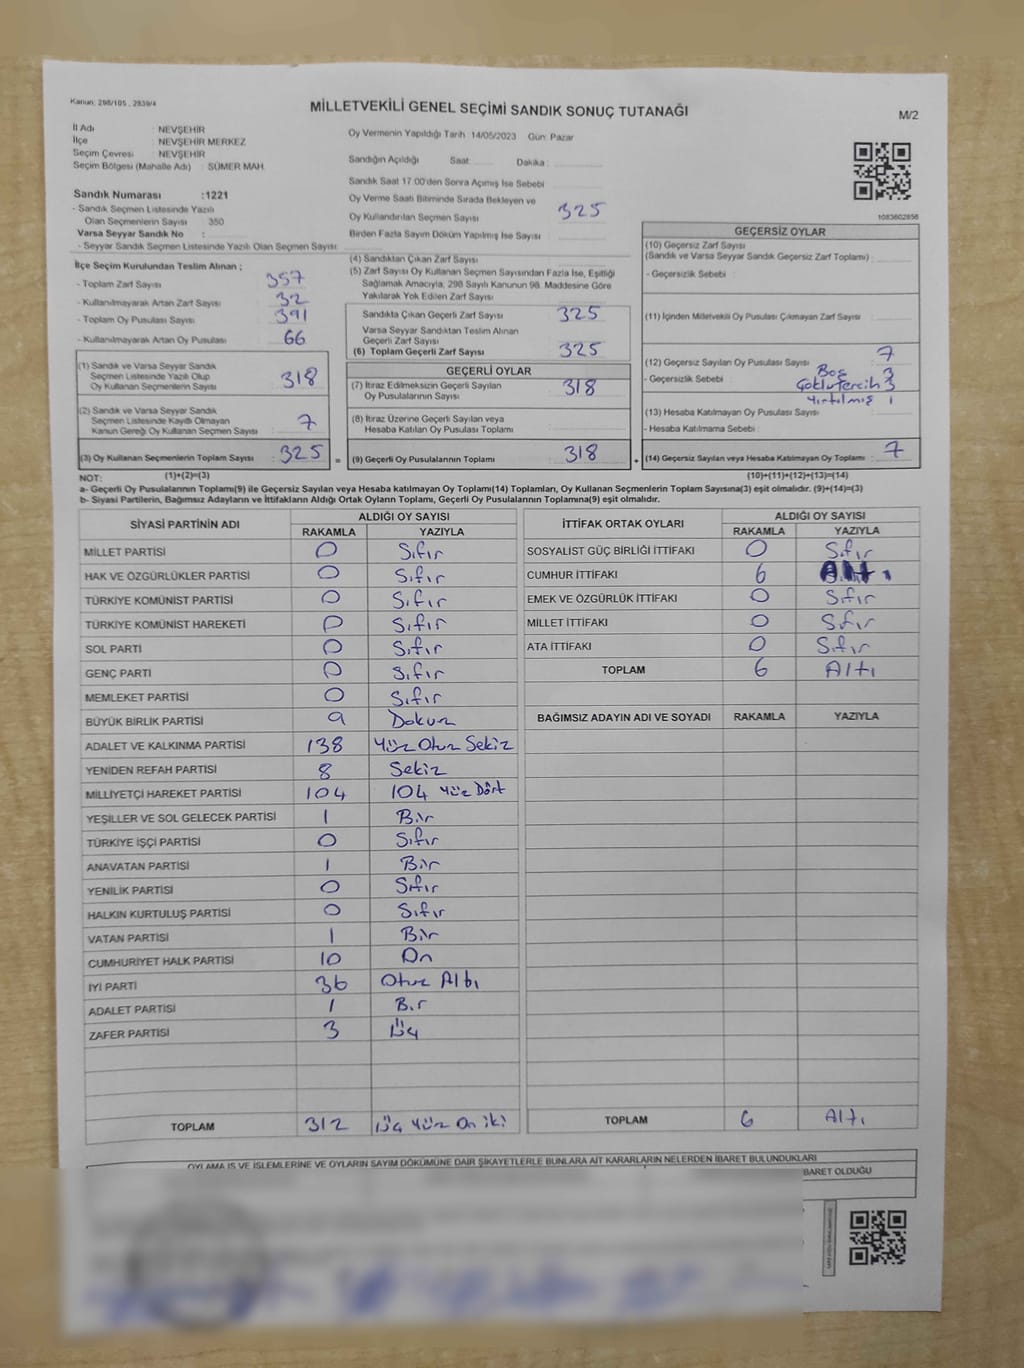 Kanun: 298/105, 2839/4
MİLLETVEKİLİ GENEL SEÇİMİ SANDIK SONUÇ TUTANAĞI
M/2
İl Adı : NEVŞEHİR
İlçe : NEVŞEHİR MERKEZ
Seçim Çevresi : NEVŞEHİR
Seçim Bölgesi (Mahalle Adı) : SÜMER MAH.
Sandık Numarası : 1221
- Sandık Seçmen Listesinde Yazılı
Olan Seçmenlerin Sayısı : 350
Varsa Seyyar Sandık No :
- Seyyar Sandık Seçmen Listesinde Yazılı Olan Seçmen Sayısı :
Oy Vermenin Yapıldığı Tarih :14/05/2023 Gün: Pazar
Sandığın Açıldığı Saat: Dakika:
Sandık Saat 17.00'den Sonra Açımış İse Sebebi
Oy Verme Saati Bitiminde Sırada Bekleyen ve
Oy Kullandırılan Seçmen Sayısı 325
Birden Fazla Sayım Döküm Yapılmış İse Sayısı
1083602858
İlçe Seçim Kurulundan Teslim Alınan ;
- Toplam Zarf Sayısı : 357
- Kullanılmayarak Artan Zarf Sayısı : 32
- Toplam Oy Pusulası Sayısı : 391
- Kullanılmayarak Artan Oy Pusulası : 66
(1) Sandık ve Varsa Seyyar Sandık
Seçmen Listesinde Yazılı Olup
Oy Kullanan Seçmenlerin Sayısı : 318
(2) Sandık ve Varsa Seyyar Sandık
Seçmen Listesinde Kayıtlı Olmayan
Kanun Gereği Oy Kullanan Seçmen Sayısı : 7
(3) Oy Kullanan Seçmenlerin Toplam Sayısı : 325 =
(4) Sandıktan Çıkan Zarf Sayısı
(5) Zarf Sayısı Oy Kullanan Seçmen Sayısından Fazla İse, Eşitliği
Sağlamak Amacıyla, 298 Sayılı Kanunun 98. Maddesine Göre
Yakılarak Yok Edilen Zarf Sayısı
Sandıkta Çıkan Geçerli Zarf Sayısı : 325
Varsa Seyyar Sandıktan Teslim Alınan
Geçerli Zarf Sayısı :
(6) Toplam Geçerli Zarf Sayısı : 325
GEÇERLİ OYLAR
(7) İtiraz Edilmeksizin Geçerli Sayılan
Oy Pusulalarının Sayısı : 318
(8) İtiraz Üzerine Geçerli Sayılan veya
Hesaba Katılan Oy Pusulası Toplamı :
(9) Geçerli Oy Pusulalarının Toplamı : 318 +
GEÇERSİZ OYLAR
(10) Geçersiz Zarf Sayısı
(Sandık ve Varsa Seyyar Sandık Geçersiz Zarf Toplamı) :
- Geçersizlik Sebebi :
(11) İçinden Milletvekili Oy Pusulası Çıkmayan Zarf Sayısı :
(12) Geçersiz Sayılan Oy Pusulası Sayısı : 7
- Geçersizlik Sebebi : Boş 3
Çoklu tercih 3
Yırtılmış 1
(13) Hesaba Katılmayan Oy Pusulası Sayısı :
- Hesaba Katılmama Sebebi :
(14) Geçersiz Sayılan veya Hesaba Katılmayan Oy Toplamı : 7
NOT: (1)+(2)=(3) (10)+(11)+(12)+(13)=(14)
a- Geçerli Oy Pusulalarının Toplamı(9) ile Geçersiz Sayılan veya Hesaba katılmayan Oy Toplamı(14) Toplamları, Oy Kullanan Seçmenlerin Toplam Sayısına(3) eşit olmalıdır. (9)+(14)=(3)
b- Siyasi Partilerin, Bağımsız Adayların ve İttifakların Aldığı Ortak Oyların Toplamı, Geçerli Oy Pusulalarının Toplamına(9) eşit olmalıdır.
SİYASİ PARTİNİN ADI ALDIĞI OY SAYISI
RAKAMLA YAZIYLA
MİLLET PARTİSİ 0 Sıfır
HAK VE ÖZGÜRLÜKLER PARTİSİ 0 Sıfır
TÜRKİYE KOMÜNİST PARTİSİ 0 Sıfır
TÜRKİYE KOMÜNİST HAREKETİ 0 Sıfır
SOL PARTİ 0 Sıfır
GENÇ PARTİ 0 Sıfır
MEMLEKET PARTİSİ 0 Sıfır
BÜYÜK BİRLİK PARTİSİ 9 Dokuz
ADALET VE KALKINMA PARTİSİ 138 Yüz Otuz Sekiz
YENİDEN REFAH PARTİSİ 8 Sekiz
MİLLİYETÇİ HAREKET PARTİSİ 104 104 Yüz Dört
YEŞİLLER VE SOL GELECEK PARTİSİ 1 Bir
TÜRKİYE İŞÇİ PARTİSİ 0 Sıfır
ANAVATAN PARTİSİ 1 Bir
YENİLİK PARTİSİ 0 Sıfır
HALKIN KURTULUŞ PARTİSİ 0 Sıfır
VATAN PARTİSİ 1 Bir
CUMHURİYET HALK PARTİSİ 10 On
İYİ PARTİ 36 Otuz Altı
ADALET PARTİSİ 1 Bir
ZAFER PARTİSİ 3 Üç
TOPLAM 312 Üç Yüz On iki
İTTİFAK ORTAK OYLARI ALDIĞI OY SAYISI
RAKAMLA YAZIYLA
SOSYALİST GÜÇ BİRLİĞİ İTTİFAKI 0 Sıfır
CUMHUR İTTİFAKI 6 Altı
EMEK VE ÖZGÜRLÜK İTTİFAKI 0 Sıfır
MİLLET İTTİFAKI 0 Sıfır
ATA İTTİFAKI 0 Sıfır
TOPLAM 6 Altı
BAĞIMSIZ ADAYIN ADI VE SOYADI RAKAMLA YAZIYLA
TOPLAM 6 Altı
OYLAMA İŞ VE İŞLEMLERİNE VE OYLARIN SAYIM DÖKÜMÜNE DAİR ŞİKAYETLERLE BUNLARA AİT KARARLARIN NELERDEN İBARET BULUNDUKLARI
BARET OLDUĞU